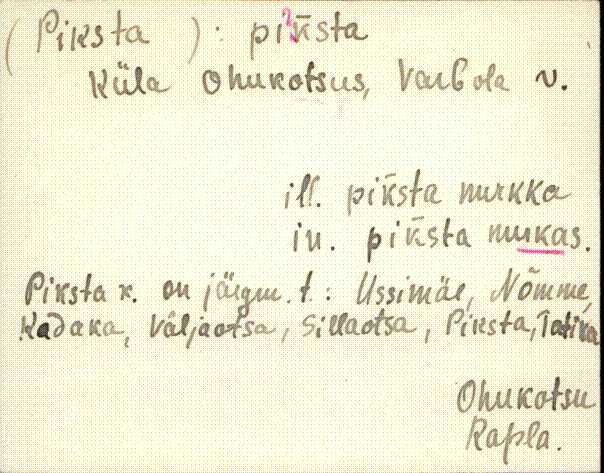 (Piksta): pik̄sta
Küla Ohukotsus, Varbola v.
ill. pik̄sta nurkka
in. pik̄sta nurkas.
Piksta k. on järgm. t.: Ussimäe, Nõmme,
Kadaka, Väljaotsa, Sillaotsa, Piksta, Tatika
Ohukotsu
Rapla.